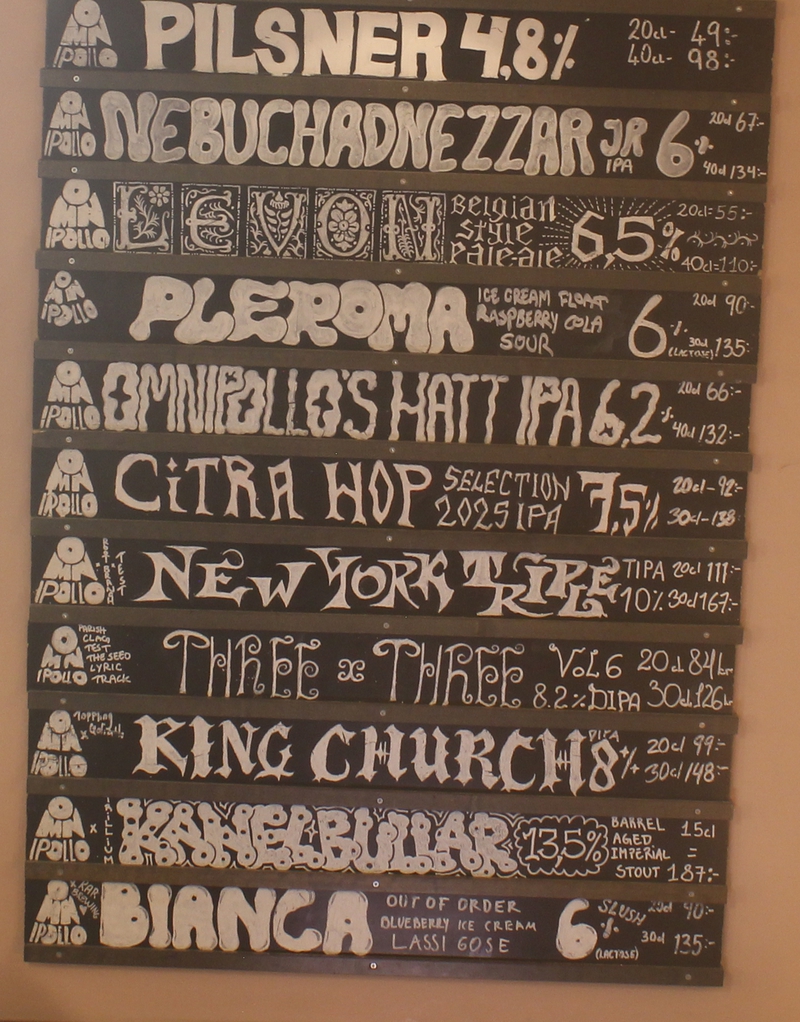 OMNIPOLLO PILSNER 4,8% 20cl- 49:-
40cl- 98:-
OMNIPOLLO NEBUCHADNEZZAR JR IPA 6% 20cl 67:-
40cl 134:-
OMNIPOLLO LEVON Belgian style Pale-ale 6,5% 20cl=55:-
40cl=110:-
OMNIPOLLO PLEROMA ICE CREAM FLOAT RASPBERRY COLA SOUR 6% (LACTOSE) 20cl 90:-
30cl 135:-
OMNIPOLLO OMNIPOLLO'S HATT IPA 6,2% 20cl 66:-
40cl 132:-
OMNIPOLLO CiTRA HOP SELECTION 2025 IPA 7,5% 20cl- 92:-
30cl-138:-
OMNIPOLLO TEST NEW YORK TRIPLE TIPA 10% 20cl 111:-
30cl 167:-
OMNIPOLLO PARISH CLAG TEST THE SEED LYRIC TRACK THREE x THREE VOL 6 8.2% DIPA 20cl 84kr
30cl 126kr
OMNIPOLLO x Toppling Goliath KING CHURCH DIPA 8% 20cl 99:-
30cl 148:-
OMNIPOLLO x TRILLIUM KANELBULLAR 13,5% BARREL AGED IMPERIAL STOUT 15cl = 187:-
OMNIPOLLO BIANCA OUT OF ORDER BLUEBERRY ICE CREAM LASSI GOSE 6% (LACTOSE) SLUSH 20cl 90:-
30cl 135:-